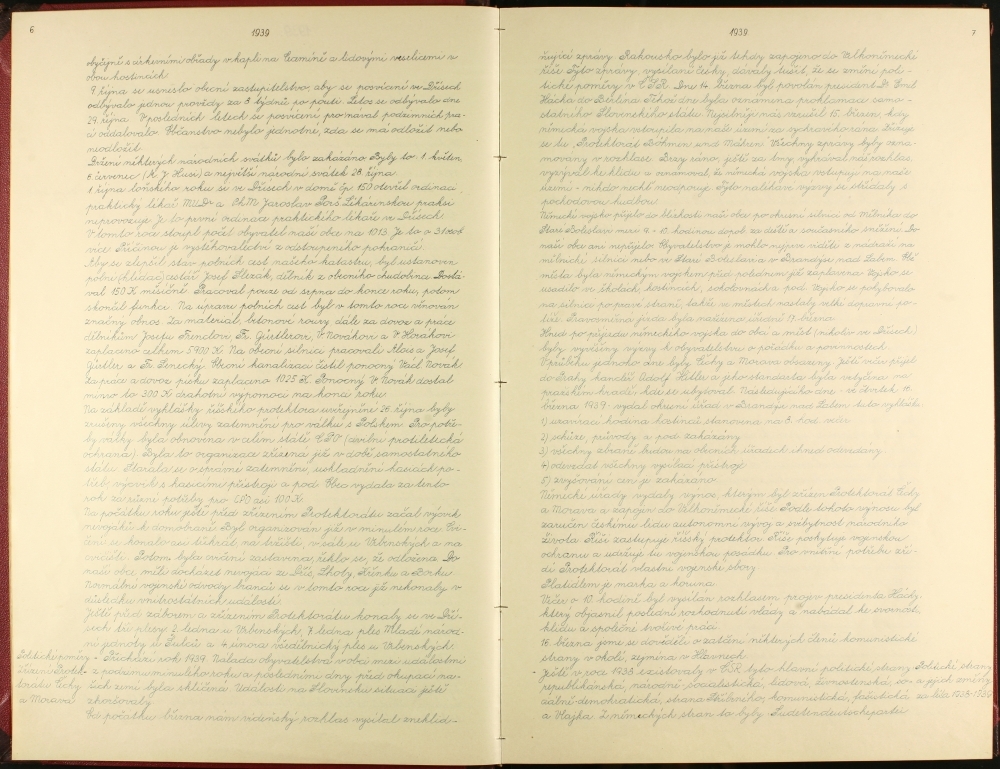 6
1939
obyčejně s církevními obřady v kapli na Cecemíně a lidovými veselicemi v
obou hostincích.
9. října se usneslo obecní zastupitelstvo, aby se posvícení ve Dřísech
odbývalo jednou provždy za 3 týdny po pouti. Letos se odbývalo dne
29. října. V posledních letech se posvícení pro nával podzimních pra-
cí oddalovalo. Občanstvo nebylo jednotné, zda se má odložit nebo
neodložit.
Držení některých národních svátků bylo zakázáno. Byly to 1. květen,
6. červenec (M. J. Husi) a největší národní svátek 28. října.
1. října loňského roku si ve Dřísech v domě čp. 150 otevřel ordinaci
praktický lékař MUDr a PhM Jaroslav Lékárenskou praksi
neprovozuje. Je to první ordinace praktického lékaře ve Dřísech.
V tomto roce stoupl počet obyvatel naší obce na 1013. Je to o 31 osob
více. Příčinou je vystěhovalectví z odstoupeného pohraničí.
Aby se zlepšil stav polních cest našeho katastru, byl ustanoven
polní (hlídací) cestář Josef Slezák, dělník z obecního chudobince. Dostá-
val 150 K měsíčně. Pracoval pouze od srpna do konce roku, potom
skončil funkci. Na úpravu polních cest byl v tomto roce věnován
značný obnos. Za materiál, betonové roury dále za dovoz a práce
dělníkům Josefu Trenclovi, Fr. Gürtlerovi, V. Novákovi a V. Horákovi
zaplaceno celkem 5900 K. Na obecní silnici pracovali Alois a Josef
Gürtler a Fr. Senecký. Obecní kanalizaci čistil ponocný Václ. Novák.
Za práce a dovoz písku zaplaceno 1025 K. Ponocný V. Novák dostal
mimo to 300 K drahotní výpomoci na konci roku.
Na základě vyhlášky říšského protektora uveřejněné 26. října byly
zrušeny všechny úlevy zatemnění pro válku s Polskem. Pro potře-
by války byla obnovena v celém státě CPO (civilní protiletecká
ochrana). Byla to organizace zřízená již v době samostatného
státu. Starala se o správné zatemnění, uskladnění hasicích po-
třeb, výcvik s hasicími přístroji a pod. Obec vydala za tento
rok za různé potřeby pro CPO asi 100 K.
Na počátku roku ještě před zřízením Protektorátu začal výcvik
nevojáků k domobraně. Byl organizován již v minulém roce. Cvi-
čení se konalo asi třikrát na hřišti, v sále u Urbenských a na
cvičišti. Potom byla cvičení zastavena, řeklo se, že odložena. Do
naší obce měli docházet nevojáci ze Dřís, Lhoty, Křenku a Borku.
Normální vojenské odvody branců se v tomto roce již nekonaly v
důsledku vnitrostátních událostí.
Ještě před záborem a zřízením Protektorátu konaly se ve Dří-
sech tři plesy: 2. ledna u Urbenských, 7. ledna ples Mladé národ-
ní jednoty u Šulců a 4. února včelničný ples u Urbenských.
Politické poměry
zřízení Protek-
torátu Čechy
a Morava
- Přichází rok 1939. Nálada obyvatelstva v obci mezi událostmi
z podzimu minulého roku a posledními dny před okupací na-
šich zemí byla skličená. Události na Slovensku situaci ještě
zhoršovaly.
Od počátku března nám vídeňský rozhlas vysílal zneklid-
1939
7
ňující zprávy. Rakousko bylo již tehdy zapojeno do Velkoněmecké
říše. Tyto zprávy, vysílané česky, dávaly tušit, že se změní poli-
tické poměry v ČSR. Dne 14. března byl povolán president Dr Emil
Hácha do Berlína. Téhož dne byla oznámena proklamace samo-
statného Slovenského státu. Nejsilněji nás vzrušil 15. březen, kdy
německá vojska vstoupila na naše území za rychravého rána. Zřizuje
se tu „Protektorát Böhmen und Mähren". Všechny zprávy byly ozna-
movány v rozhlase. Brzy ráno, ještě za tmy, vyhrával náš rozhlas,
vyzýval ke klidu a oznamoval, že německá vojska vstupují na naše
území - nikdo nechť neodporuje. Tyto naléhavé výzvy se střídaly s
pochodovou hudbou.
Německé vojsko přijelo do blízkosti naší obce po okresní silnici od Mělníka do
Staré Boleslavi mezi 9. - 10. hodinou dopol. za deště a současného sněžení. Do
naší obce ani nepřijelo. Obyvatelstvo je mohlo nejprv vidět z nádraží na
mělnické silnici nebo ve Staré Boleslavi a v Brandýse nad Labem. Obě
města byla německým vojskem před polednem již zaplavena. Vojsko se
usadilo ve školách, hostincích, sokolovnách a pod. Vojsko se pohybovalo
na silnici po pravé straně, takže ve městech nastaly velké dopravní po-
tíže. Pravostranná jízda byla nařízena úředně 17. března.
Hned po příjezdu německého vojska do obcí a měst (nikoliv ve Dřísech)
byly vyvěšeny výzvy k obyvatelstvu o pořádku a povinnostech.
V průběhu jednoho dne byly Čechy a Morava obsazeny. Ještě večer přijel
do Prahy kancléř Adolf Hitler a jeho standarta byla vztyčena na
pražském hradě, kde se ubytoval. Následujícího dne - ve čtvrtek 16.
března 1939 - vydal okresní úřad v Brandýse nad Labem tuto vyhlášku:
1) uzavírací hodina hostinců stanovena na 8. hod. večer.
2) schůze, průvody a pod. zakázány
3) všechny zbraně budou na obecních úřadech ihned odevzdány.
4) odevzdat všechny vysílací přístroje
5) zvyšování cen je zakázáno.
Německé úřady vydaly výnos, kterým byl zřízen Protektorát Čechy
a Morava a zapojen do Velkoněmecké říše. Podle tohoto výnosu byl
zaručen českému lidu autonomní vývoj a svébytnost národního
života. Říši zastupuje říšský protektor. Říše poskytuje vojenskou
ochranu a udržuje tu vojenskou posádku. Pro vnitřní potřebu zří-
dí Protektorát vlastní vojenské sbory.
Platidlem je marka a koruna.
Večer o 10. hodině byl vysílán rozhlasem projev presidenta Háchy,
který objasnil poslední rozhodnutí vlády a nabádal ke svornosti,
klidu a společné tvořivé práci.
16. března jsme se dověděli o zatčení některých členů komunistické
strany v okolí, zejména v Hlavenci.
- Ještě v roce 1938 existovaly v ČSR tyto hlavní politické strany:
republikánská, národně socialistická, lidová, živnostenská, so-
ciálně-demokratická, strana Stříbrného, komunistická, fašistická
a Vlajka. Z německých stran to byly: Sudetendeutschepartei
Politické strany
a jich změny
za léta 1938-1939